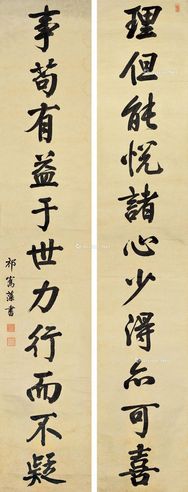 理但能悦諸心少得亦可喜
事苟有益于世力行而不疑
祁寯藻書